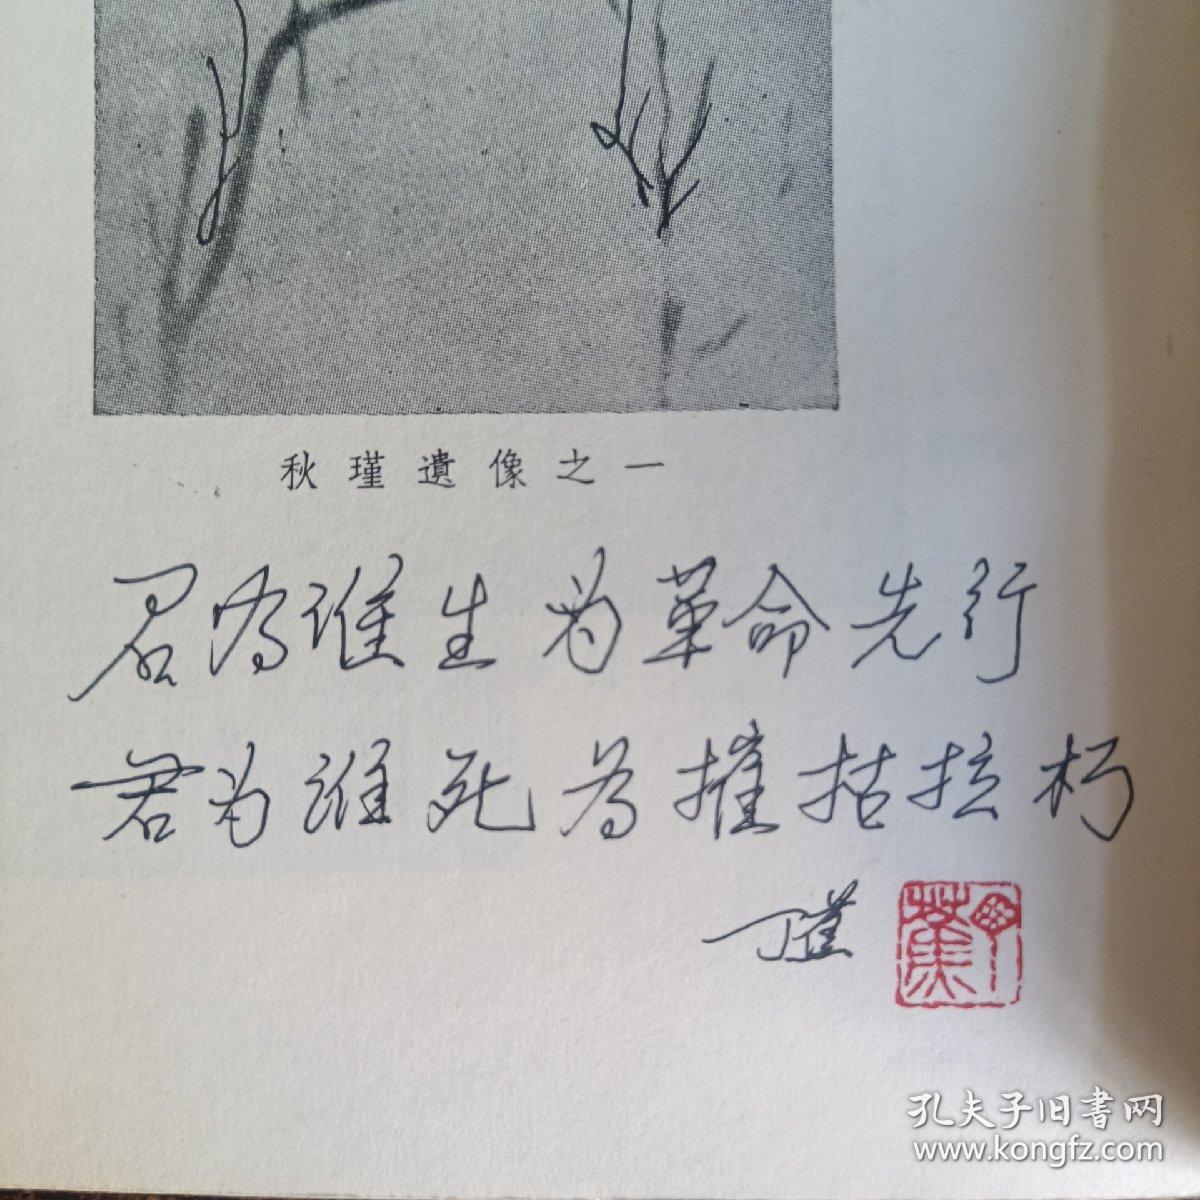 秋瑾遺像之一
君为谁生为革命先行
君为谁死为摧枯拉朽
丁瑾
孔夫子旧书网
www.kongfz.com